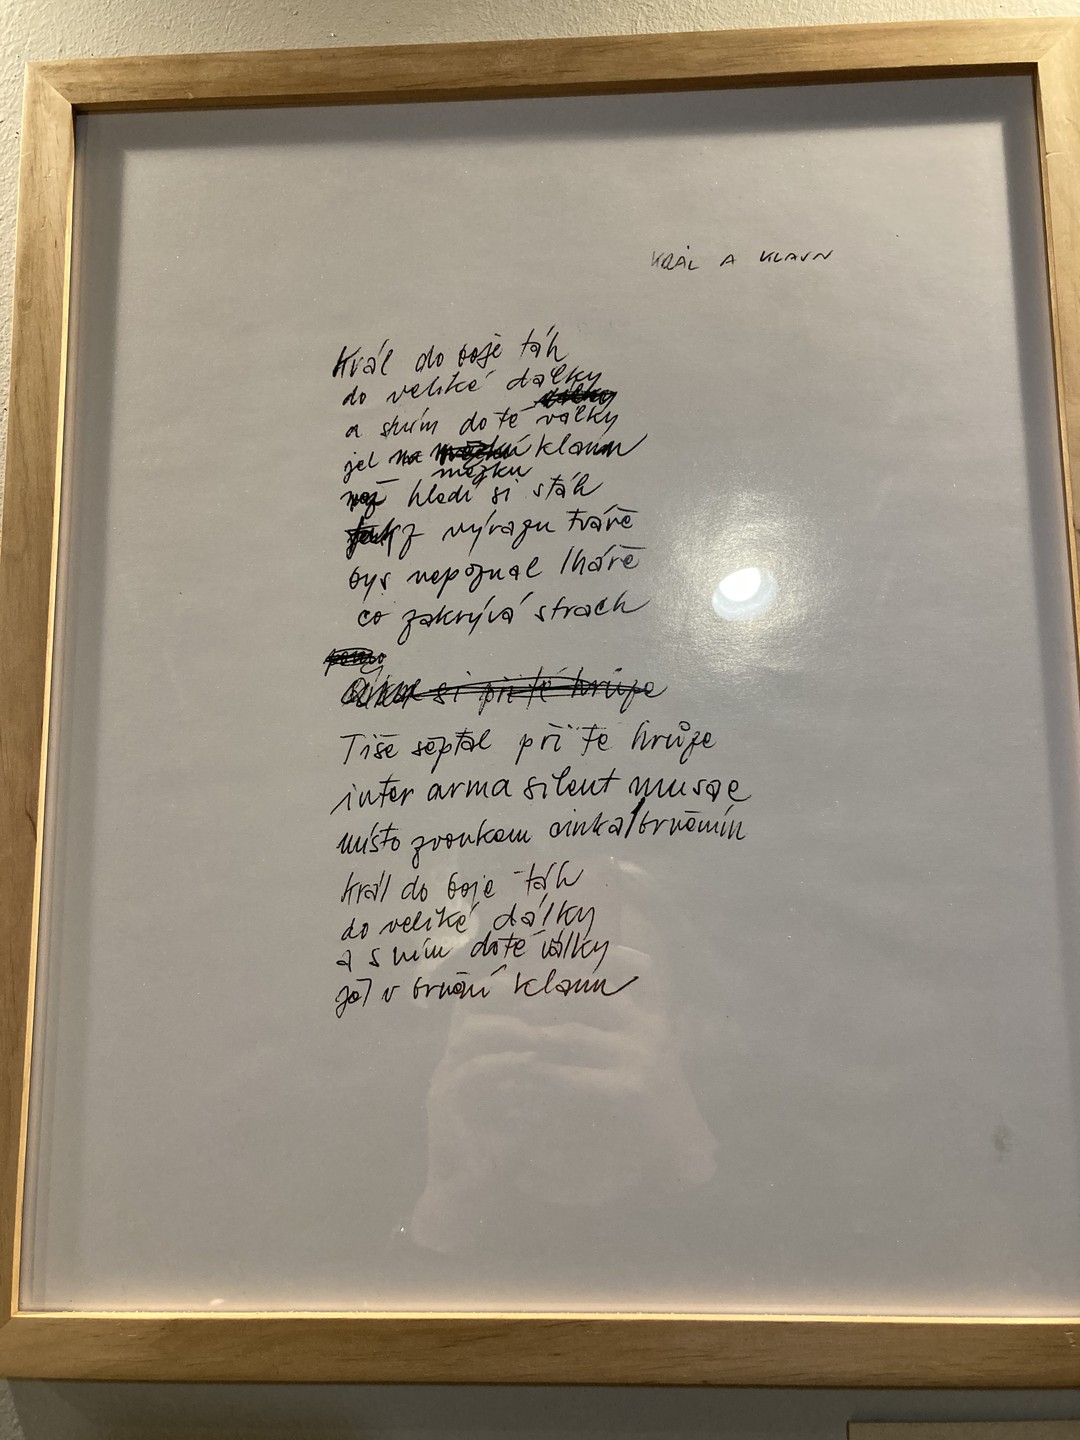 KRÁL A KLAUN
Král do boje táh
do veliké dálky
a s ním do té války
jel na mezku klaun
než hledí si stáh
tak z výrazu tváře
bys nepoznal lháře
co zakrývá strach
si při té hrůze
Tiše šeptal při té hrůze
inter arma silent musae
místo zvonkem cinkal brněním
král do boje táh
do veliké dálky
a s ním do té války
jel v brnění klaun